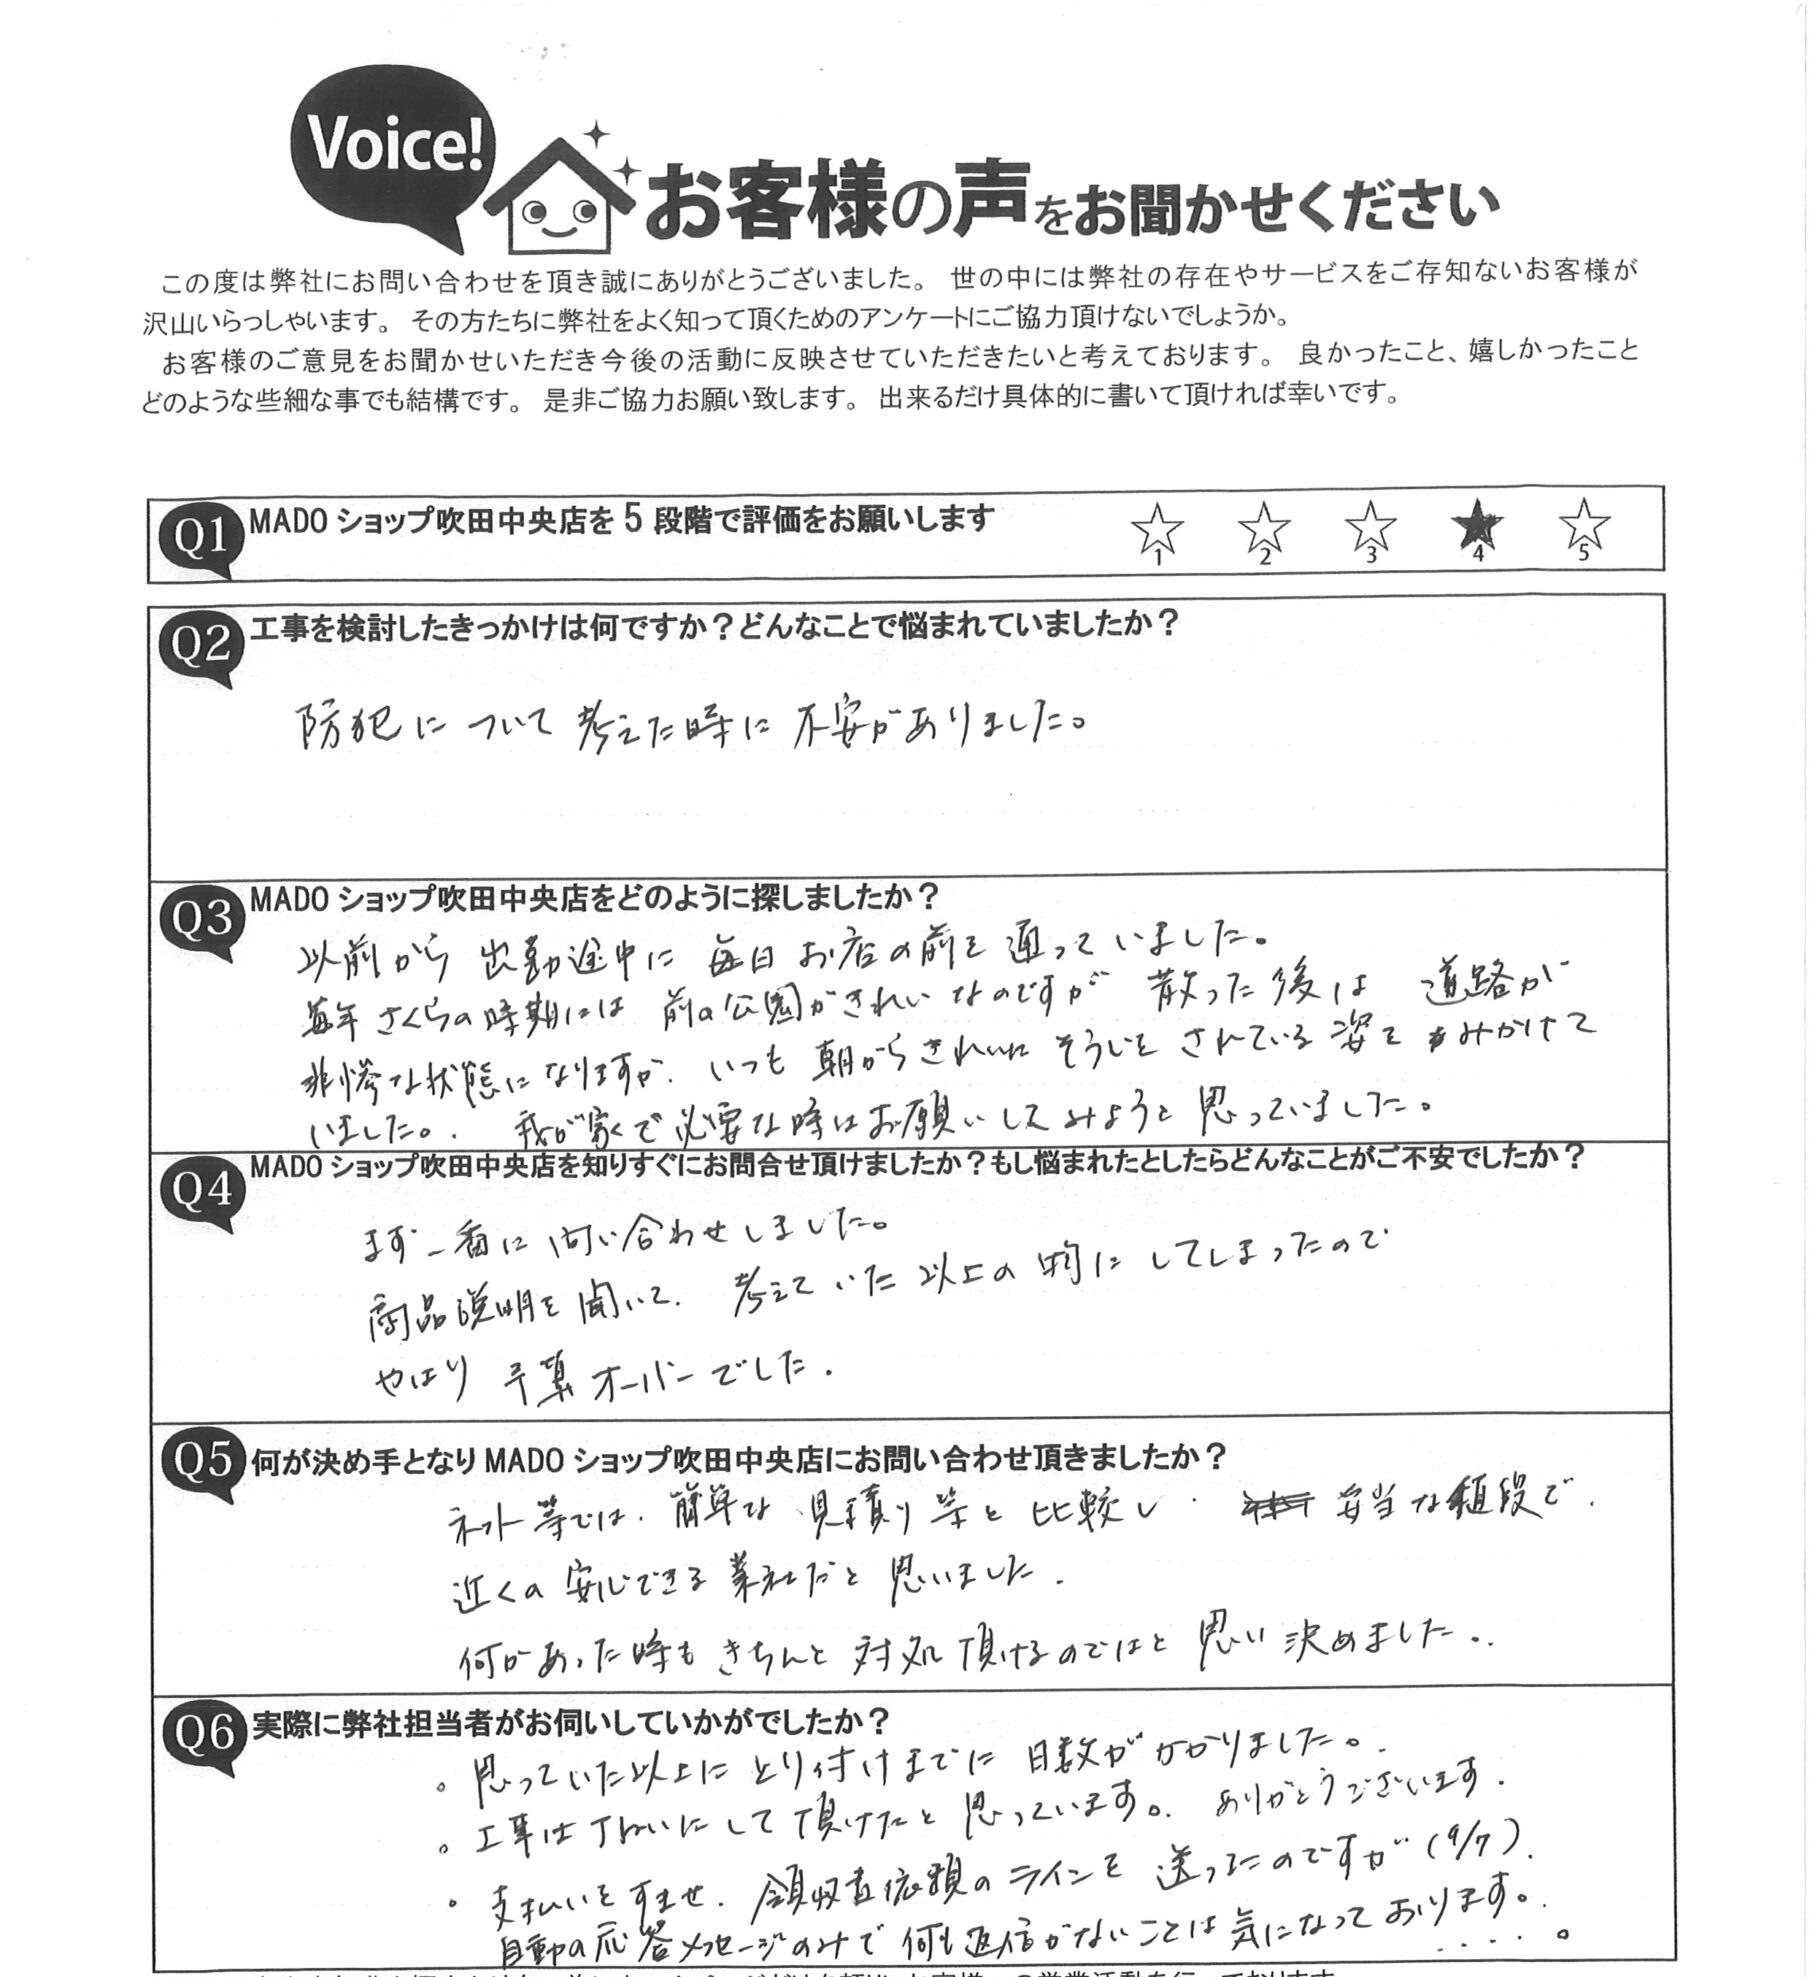 Voice!
お客様の声をお聞かせください
この度は弊社にお問い合わせを頂き誠にありがとうございました。 世の中には弊社の存在やサービスをご存知ないお客様が
沢山いらっしゃいます。 その方たちに弊社をよく知って頂くためのアンケートにご協力頂けないでしょうか。
お客様のご意見をお聞かせいただき今後の活動に反映させていただきたいと考えております。 良かったこと、嬉しかったこと
どのような些細な事でも結構です。 是非ご協力お願い致します。 出来るだけ具体的に書いて頂ければ幸いです。
Q1 MADO ショップ吹田中央店を 5 段階で評価をお願いします 1 2 3 4 5
Q2 工事を検討したきっかけは何ですか？どんなことで悩まれていましたか？
防犯について考えた時に不安がありました。
Q3 MADO ショップ吹田中央店をどのように探しましたか？
以前から出勤途中に毎日お店の前を通っていました。
毎年さくらの時期には前の公園がきれいなのですが散った後は道路が
悲惨な状態になりますが、いつも朝からきれいにそうじをされている姿をみかけて
いました。. 我が家で必要な時はお願いしてみようと思っていました。
Q4 MADO ショップ吹田中央店を知りすぐにお問合せ頂けましたか？もし悩まれたとしたらどんなことがご不安でしたか？
まず一番に問い合わせしました。
商品説明を聞いて、考えていた以上の物にしてしまったので
やはり予算オーバーでした.
Q5 何が決め手となり MADO ショップ吹田中央店にお問い合わせ頂きましたか？
ネット等では、簡単な見積り等と比較し、妥当な値段で、
近くの安心できる業社だと思いました.
何かあった時もきちんと対処頂けるのではと思い決めました。.
Q6 実際に弊社担当者がお伺いしていかがでしたか？
。思っていた以上にとり付けまでに日数がかかりました。.
。工事は丁ねいにして頂けたと思っています。. ありがとうございます.
・支払いをすませ、領収書依頼のラインを送ったのですが(9/7).
自動の応答メッセージのみで何も返信がないことは気になっております。.
‥‥。